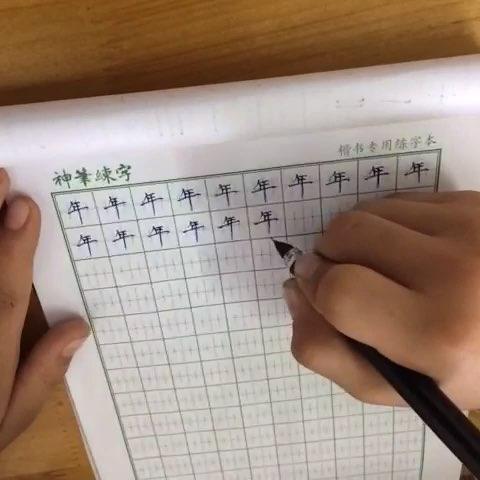 神筆练字 楷书专用练字本
年年年年年年年年年年
年年年年年年